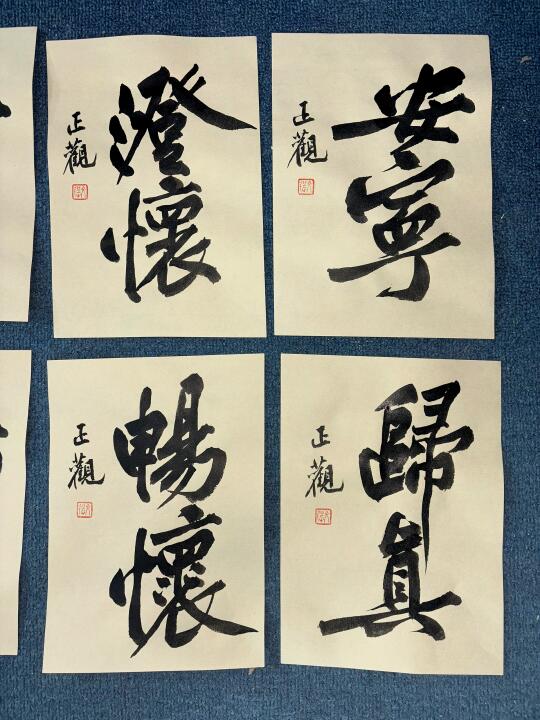 安寧
正觀
澄懷
正觀
歸真
正觀
暢懷
正觀